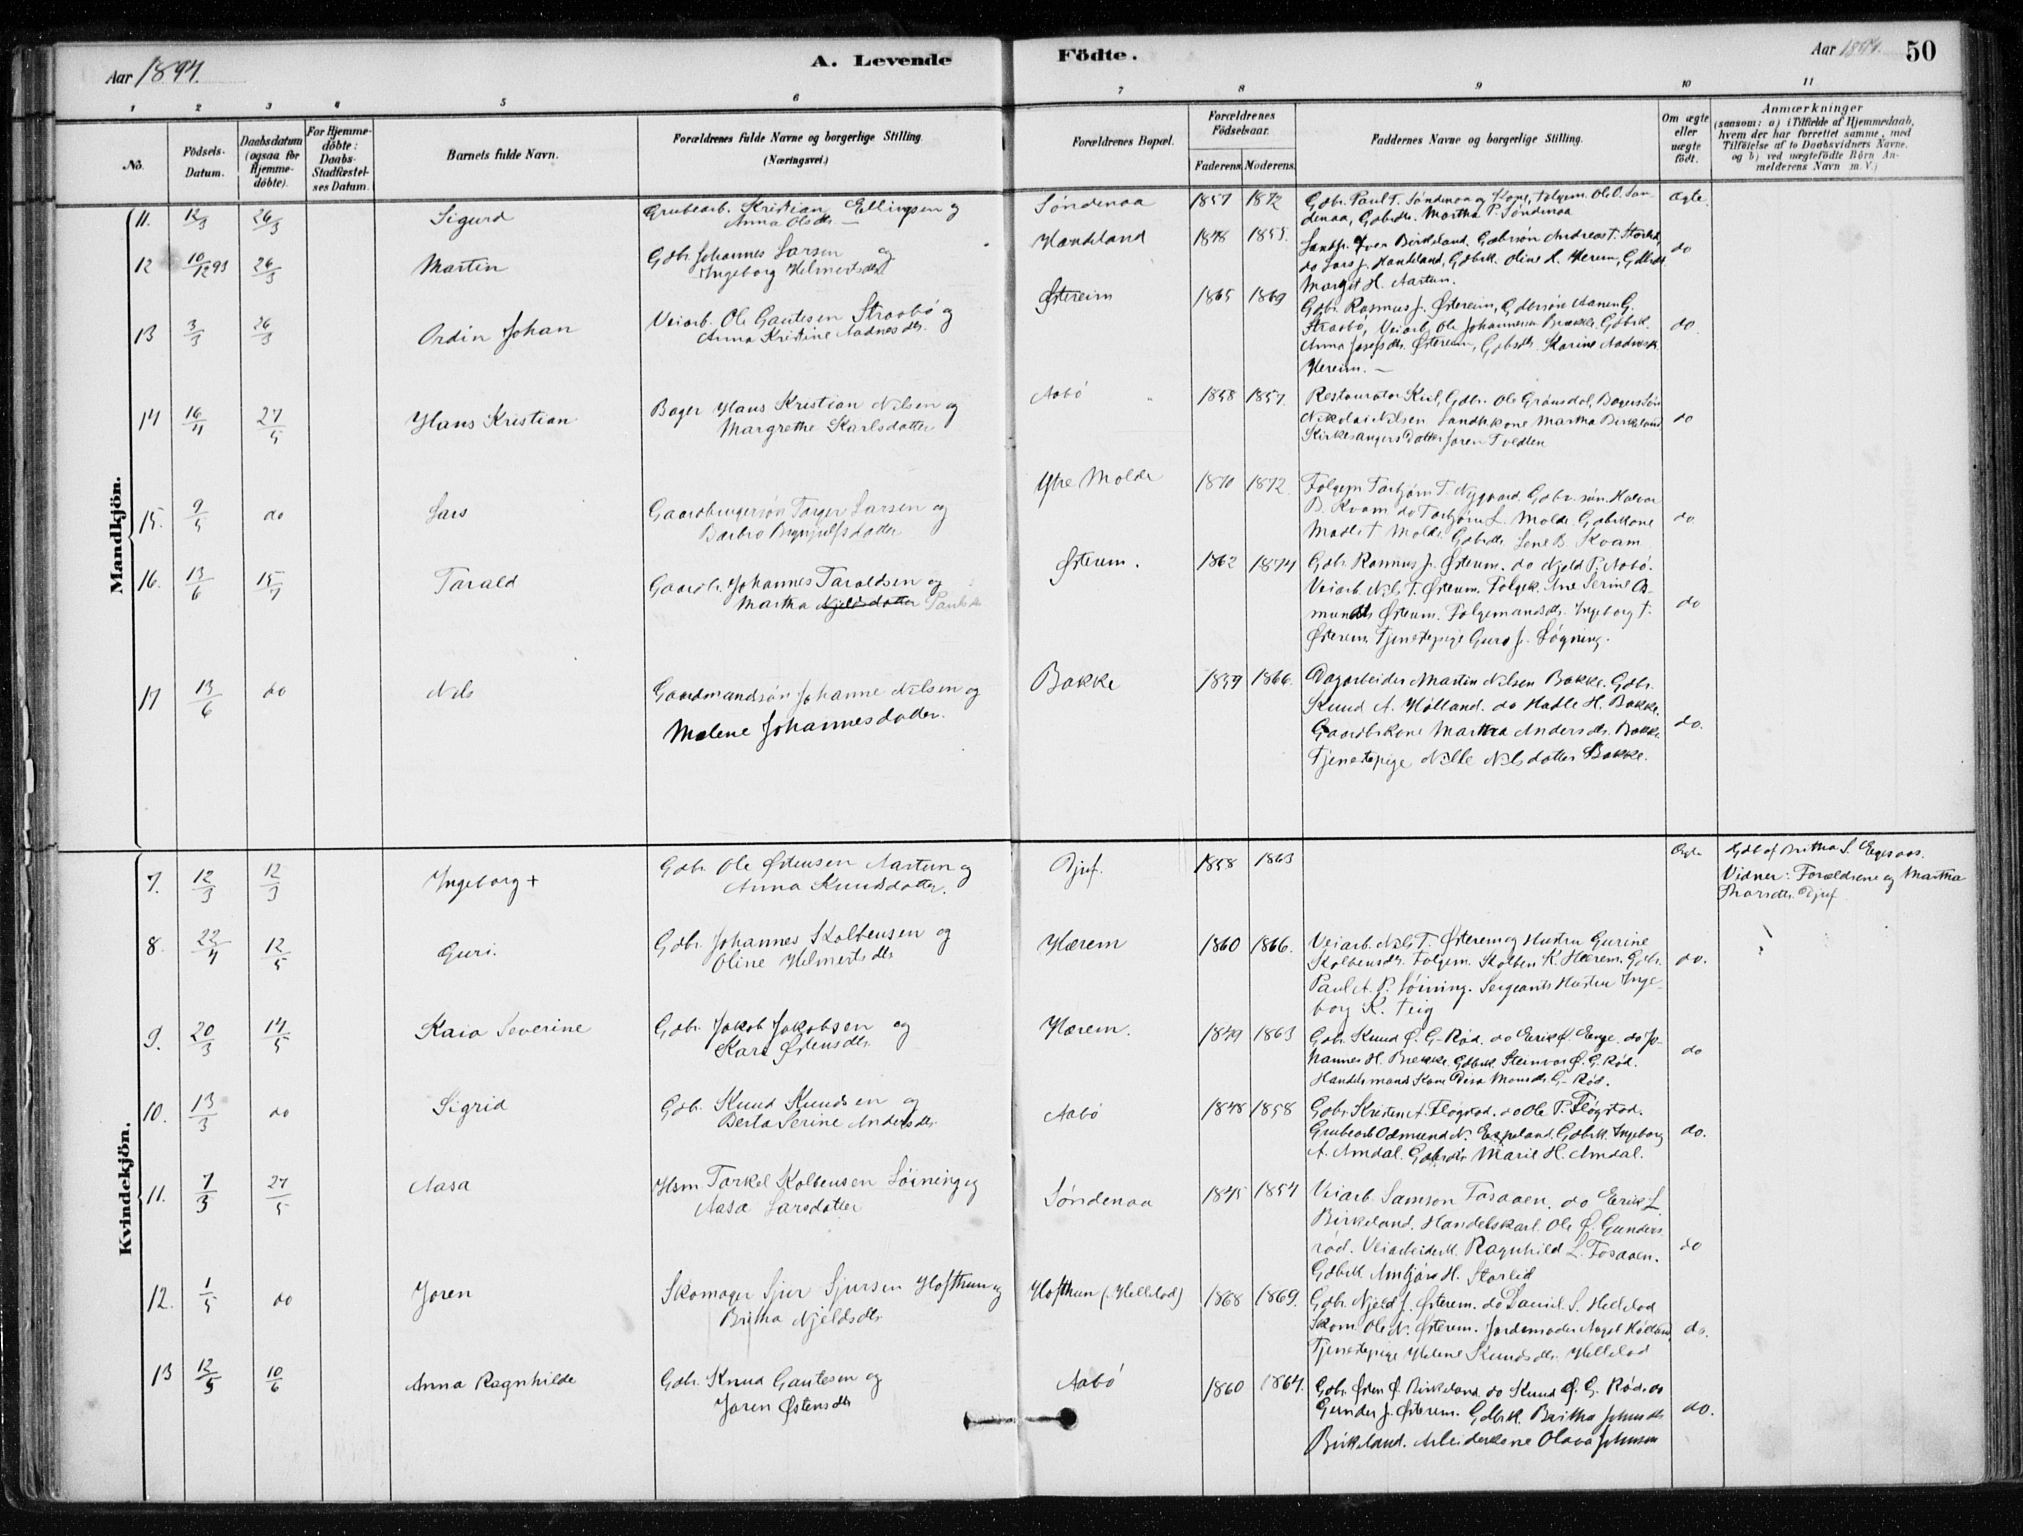 Aar 1894.
A. Levende Födte.
Aar 1894. 50
1 2 3 4 5 6 7 8 9 10 11
No.
Födsels-Datum.
Daabsdatum (ogsaa for Hjemme-döbte).
For Hjemme-döbte: Daabs-Stadfæstel-ses Datum.
Barnets fulde Navn.
Forældrenes fulde Navne og borgerlige Stilling. (Næringsvei.)
Forældrenes Bopæl.
Forældrenes Födselsaar.
Faderens. Moderens.
Faddernes Navne og borgerlige Stilling.
Om ægte eller uægte födt.
Anmærkninger
(saasom: a) i Tilfælde af Hjemmedaab, hvem der har forrettet samme, med Tilföielse af to Daabsvidners Navne. og b) ved uægtefödte Börn An-melderens Navn m. V.)
Mandkjön.
11. 12/3 26/3 Sigurd
Grubearb. Kristian Ellingsen og
Anna Olsdtr. —
Søndenaa 1857 1872
Gbr. Paul T. Søndenaa og Kone, Folgem. Ole O. Søn-
denaa, Gbrdtr. Martha P. Søndenaa
Ægte.
12 10/12 93 26/3 Martin
Gbr. Johannes Larsen og
Ingeborg Helmertsdtr
Handeland 1848 1855.
Landh. Iver Birkeland. Gbrsøn Andreas T. Storlid,
do Lars J. Handeland, Gbrk. Oline H. Herem, Gbrdtr
Margit H. Aartun.
do
13 3/3 26/3 Ordin Johan
Veiarb. Ole Gautesen Straabø og
Anna Kristine Aadnesdtr.
Østereim 1865 1869
Gbr. Rasmus J. Østereim, Gbrsøn Aanen G.
Straabø, Veiarb. Ole Johannesen Brække, Gbrk.
Anna Josefsdtr. Østereim, Gbrdtr. Karine Aadnesdr.
Hereim. —
do.
14 16/4 27/5 Hans Kristian
Bager Hans Kristian Nilsen og
Margrethe Karlsdatter
Aabø 1858 1857.
Restauratør Keil, Gbr. Ole Grønsdal, Bagersøn
Nikolai Nilsen Landhkone Martha Birkeland
Kirkesangers Datter Joren Tvedten
do
15. 9/5 do Lars
Gaardbrugersøn Torger Larsen og
Barbro Brynjulfsdatter
Ytre Molde 1870 1872.
Folgem Torbjørn T. Nygaard. Gbr. søn. Halvor
B. Kvam do Torbjørn L. Molde. Gbrkone
Madle T Molde Gbrdtr. Lene B. Kvam
do
16. 13/6 15/7 Tarald
Gaardbr. Johannes Taraldsen og
Martha Njeldsdatter Paulsdr
Østerem. 1862 1874
Gbr. Rasmus J. Østerem. do Njeld P. Aabø.
Veiarb. Nils T. Østerem. Folgek. Ane Serine As-
mundsdtr Østerem. Folgemandsdtr. Ingeborg T.
Østerem Tjenestepige Guro J. Søgning.
do
17 13/6 do Nils
Gaardmandssøn Johanne Nilsen og
Malene Johannesdatter.
Bakke 1859 1866.
Dagarbeider Martin Nilsen Bakke. Gbr.
Knud A. Hølland. do Hadle H. Bakke.
Gaardbrkone Martha Andersdr. Bakke
Tjenestepige Nille Nilsdatter Bakke.
do.
Kvindekjön.
7. 12/3 12/3 Ingeborg +
Gbr. Ole Østensen Aartun og
Anna Knudsdatter.
Djuf. 1858 1863
Ægte
Gdb af Britha S. Egesaas.
Vidner: Forældrene og Martha
Thorsdtr. Djuf
8. 22/4 12/5 Guri.
Gbr. Johannes Kolbensen og
Oline Helmertsdtr
Hærem 1860 1866.
Veiarb. Nils T. Østerem og Hustru Gurine
Kolbensdtr. Folgem. Kolben K. Hærem. Gbr.
Paul A. P. Søining. Sergeants Hustru Inge-
borg K. Teig
do.
9. 20/3 14/5 Kaia Severine
Gbr. Jakob Jakobsen og
Kari Østensdtr.
Hærem. 1849 1863
Gbr. Knud Ø. G-Rød. do Erik Ø. Enge. do Jo-
hannes H. Brekke. Gbrk. Steinvor Ø. G. Rød.
Handelsmands Kone Disa Monsdr. G-Rød.
do
10. 13/3 do Sigrid
Gbr. Knud Knudsen og
Berta Serine Andersdtr.
Aabø 1848 1858
Gbr. Kristen A. Fløgstad. do Ole P. Fløgstad.
Grubearb. Odmund N. Espeland. Gbrk. Ingeborg
A. Amdal. Gbrdtr Marie H. Amdal.
do.
11. 7/3 27/5 Aasa
Hsm. Torkel Kolbensen Søining og
Aasa Larsdatter
Søndenaa 1845 1854
Veiarb. Samson Fosaaen. do Erik L.
Birkeland. Handelskarl Ole Ø. Gunders
rød. Veiarbeiderk. Ragnhild L. Fosaaen.
Gbrk. Anbjøre H. Storlid
do
12. 1/5 do Joren
Skomager Sjur Sjursen Hofthun og
Britha Njeldsdtr
Hofthun (Hellelad) 1868 1869.
Gbr. Njeld J. Østerem. do Daniel S. Hellelad
Skom. Ole N. Østerem. Jordemoder Aagot Hølland
Tjenestepige Helene Knudsdtr. Hellelad
do.
13 12/5 10/6 Anna Ragnhilde
Gbr. Knud Gautesen og
Joren Østensdtr
Aabø 1860 1864.
Gbr. Østen Ø. Birkeland. do Knud Ø. G. Rød. do
Gunder J. Østerem. Gbrk. Britha Johnsdtr
Birkeland. Arbeiderkone Olava Johnsen
do.